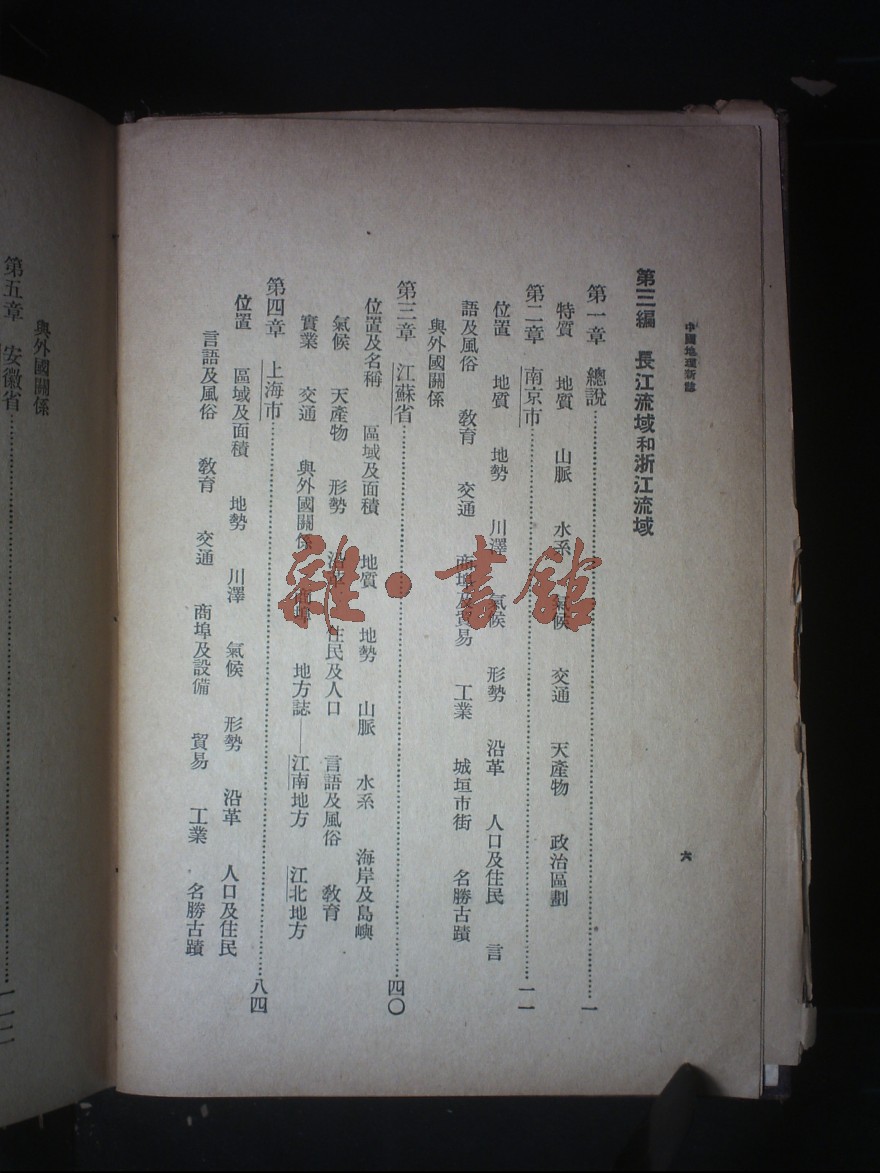 中國地理新誌
六
第三編 長江流域和浙江流域
第一章 總說…………一
特質 地質 山脈 水系 氣候 交通 天產物 政治區劃
第二章 南京市…………二一
位置 地質 地勢 川澤 氣候 形勢 沿革 人口及住民 言
語及風俗 教育 交通 商埠及貿易 工業 城垣市街 名勝古蹟
與外國關係
第三章 江蘇省…………四〇
位置及名稱 區域及面積 地質 地勢 山脈 水系 海岸及島嶼
氣候 天產物 形勢 沿革 住民及人口 言語及風俗 教育
實業 交通 與外國關係 商埠 地方誌——江南地方 江北地方
第四章 上海市…………八四
位置 區域及面積 地勢 川澤 氣候 形勢 沿革 人口及住民
言語及風俗 教育 交通 商埠及設備 貿易 工業 名勝古蹟
與外國關係
第五章 安徽省…………
雜·書館